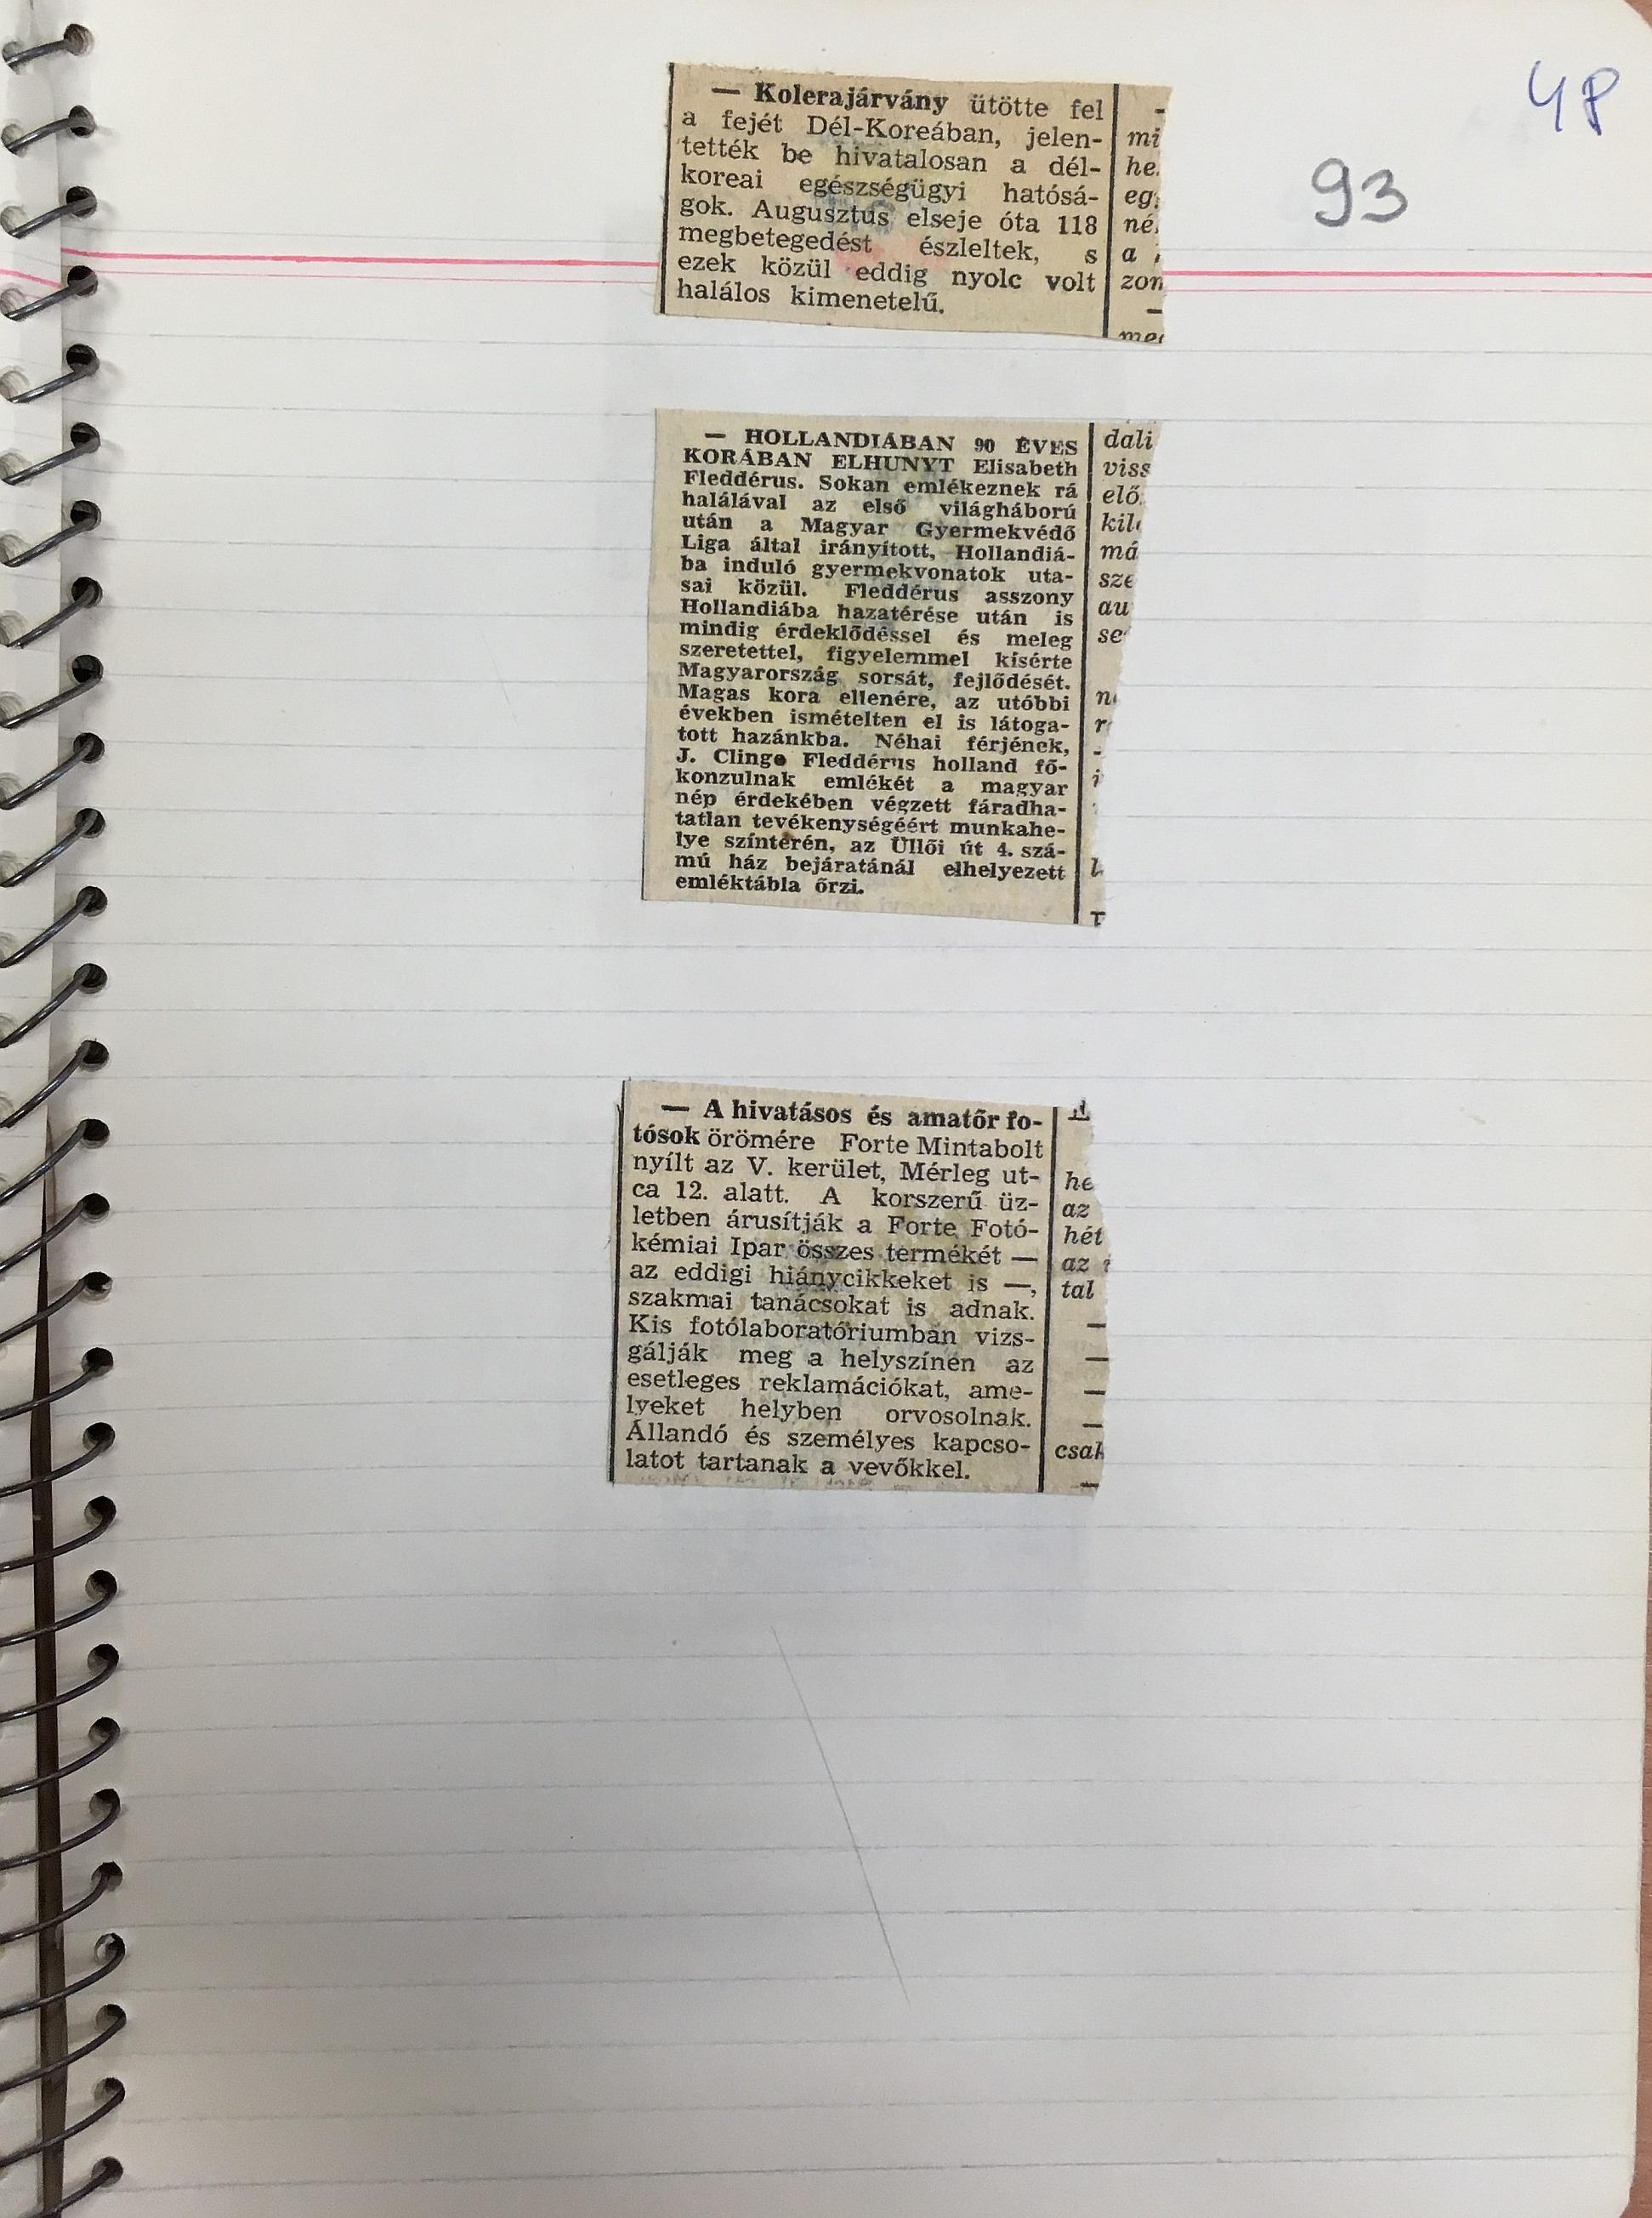 4P
93
— Kolerajárvány ütötte fel
a fejét Dél-Koreában, jelen-
tették be hivatalosan a dél-
koreai egészségügyi hatósá-
gok. Augusztus elseje óta 118
megbetegedést észleltek, s
ezek közül eddig nyolc volt
halálos kimenetelű.
mi
he
eg
né
a
zon
— HOLLANDIÁBAN 90 ÉVES
KORÁBAN ELHUNYT Elisabeth
Fleddérus. Sokan emlékeznek rá
halálával az első világháború
után a Magyar Gyermekvédő
Liga által irányított, Hollandiá-
ba induló gyermekvonatok uta-
sai közül. Fleddérus asszony
Hollandiába hazatérése után is
mindig érdeklődéssel és meleg
szeretettel, figyelemmel kisérte
Magyarország sorsát, fejlődését.
Magas kora ellenére, az utóbbi
években ismételten el is látoga-
tott hazánkba. Néhai férjének,
J. Clinge Fleddérus holland fő-
konzulnak emlékét a magyar
nép érdekében végzett fáradha-
tatlan tevékenységéért munkahe-
lye színterén, az Üllői út 4. szá-
mú ház bejáratánál elhelyezett
emléktábla őrzi.
dali
viss
elő
kil
má
sze
au
se
— A hivatásos és amatőr fo-
tósok örömére Forte Mintabolt
nyílt az V. kerület, Mérleg ut-
ca 12. alatt. A korszerű üz-
letben árusítják a Forte Fotó-
kémiai Ipar összes termékét —
az eddigi hiánycikkeket is —,
szakmai tanácsokat is adnak.
Kis fotólaboratóriumban vizs-
gálják meg a helyszínen az
esetleges reklamációkat, ame-
lyeket helyben orvosolnak.
Állandó és személyes kapcso-
latot tartanak a vevőkkel.
he
az
hét
az
tal
csak